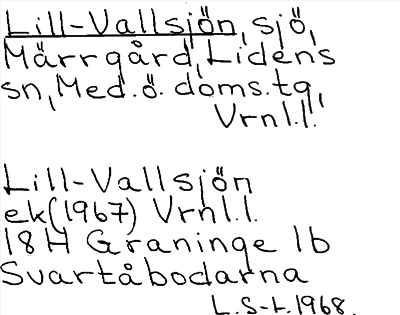 Lill-Vallsjön, sjö,
Märrgård, Lidens
sn, Med.ö. doms.tg,
Vrnl.l.
Lill-Vallsjön
ek(1967) Vrnl.l.
18H Graninge 1b
Svartåbodarna
L.S-t.1968.